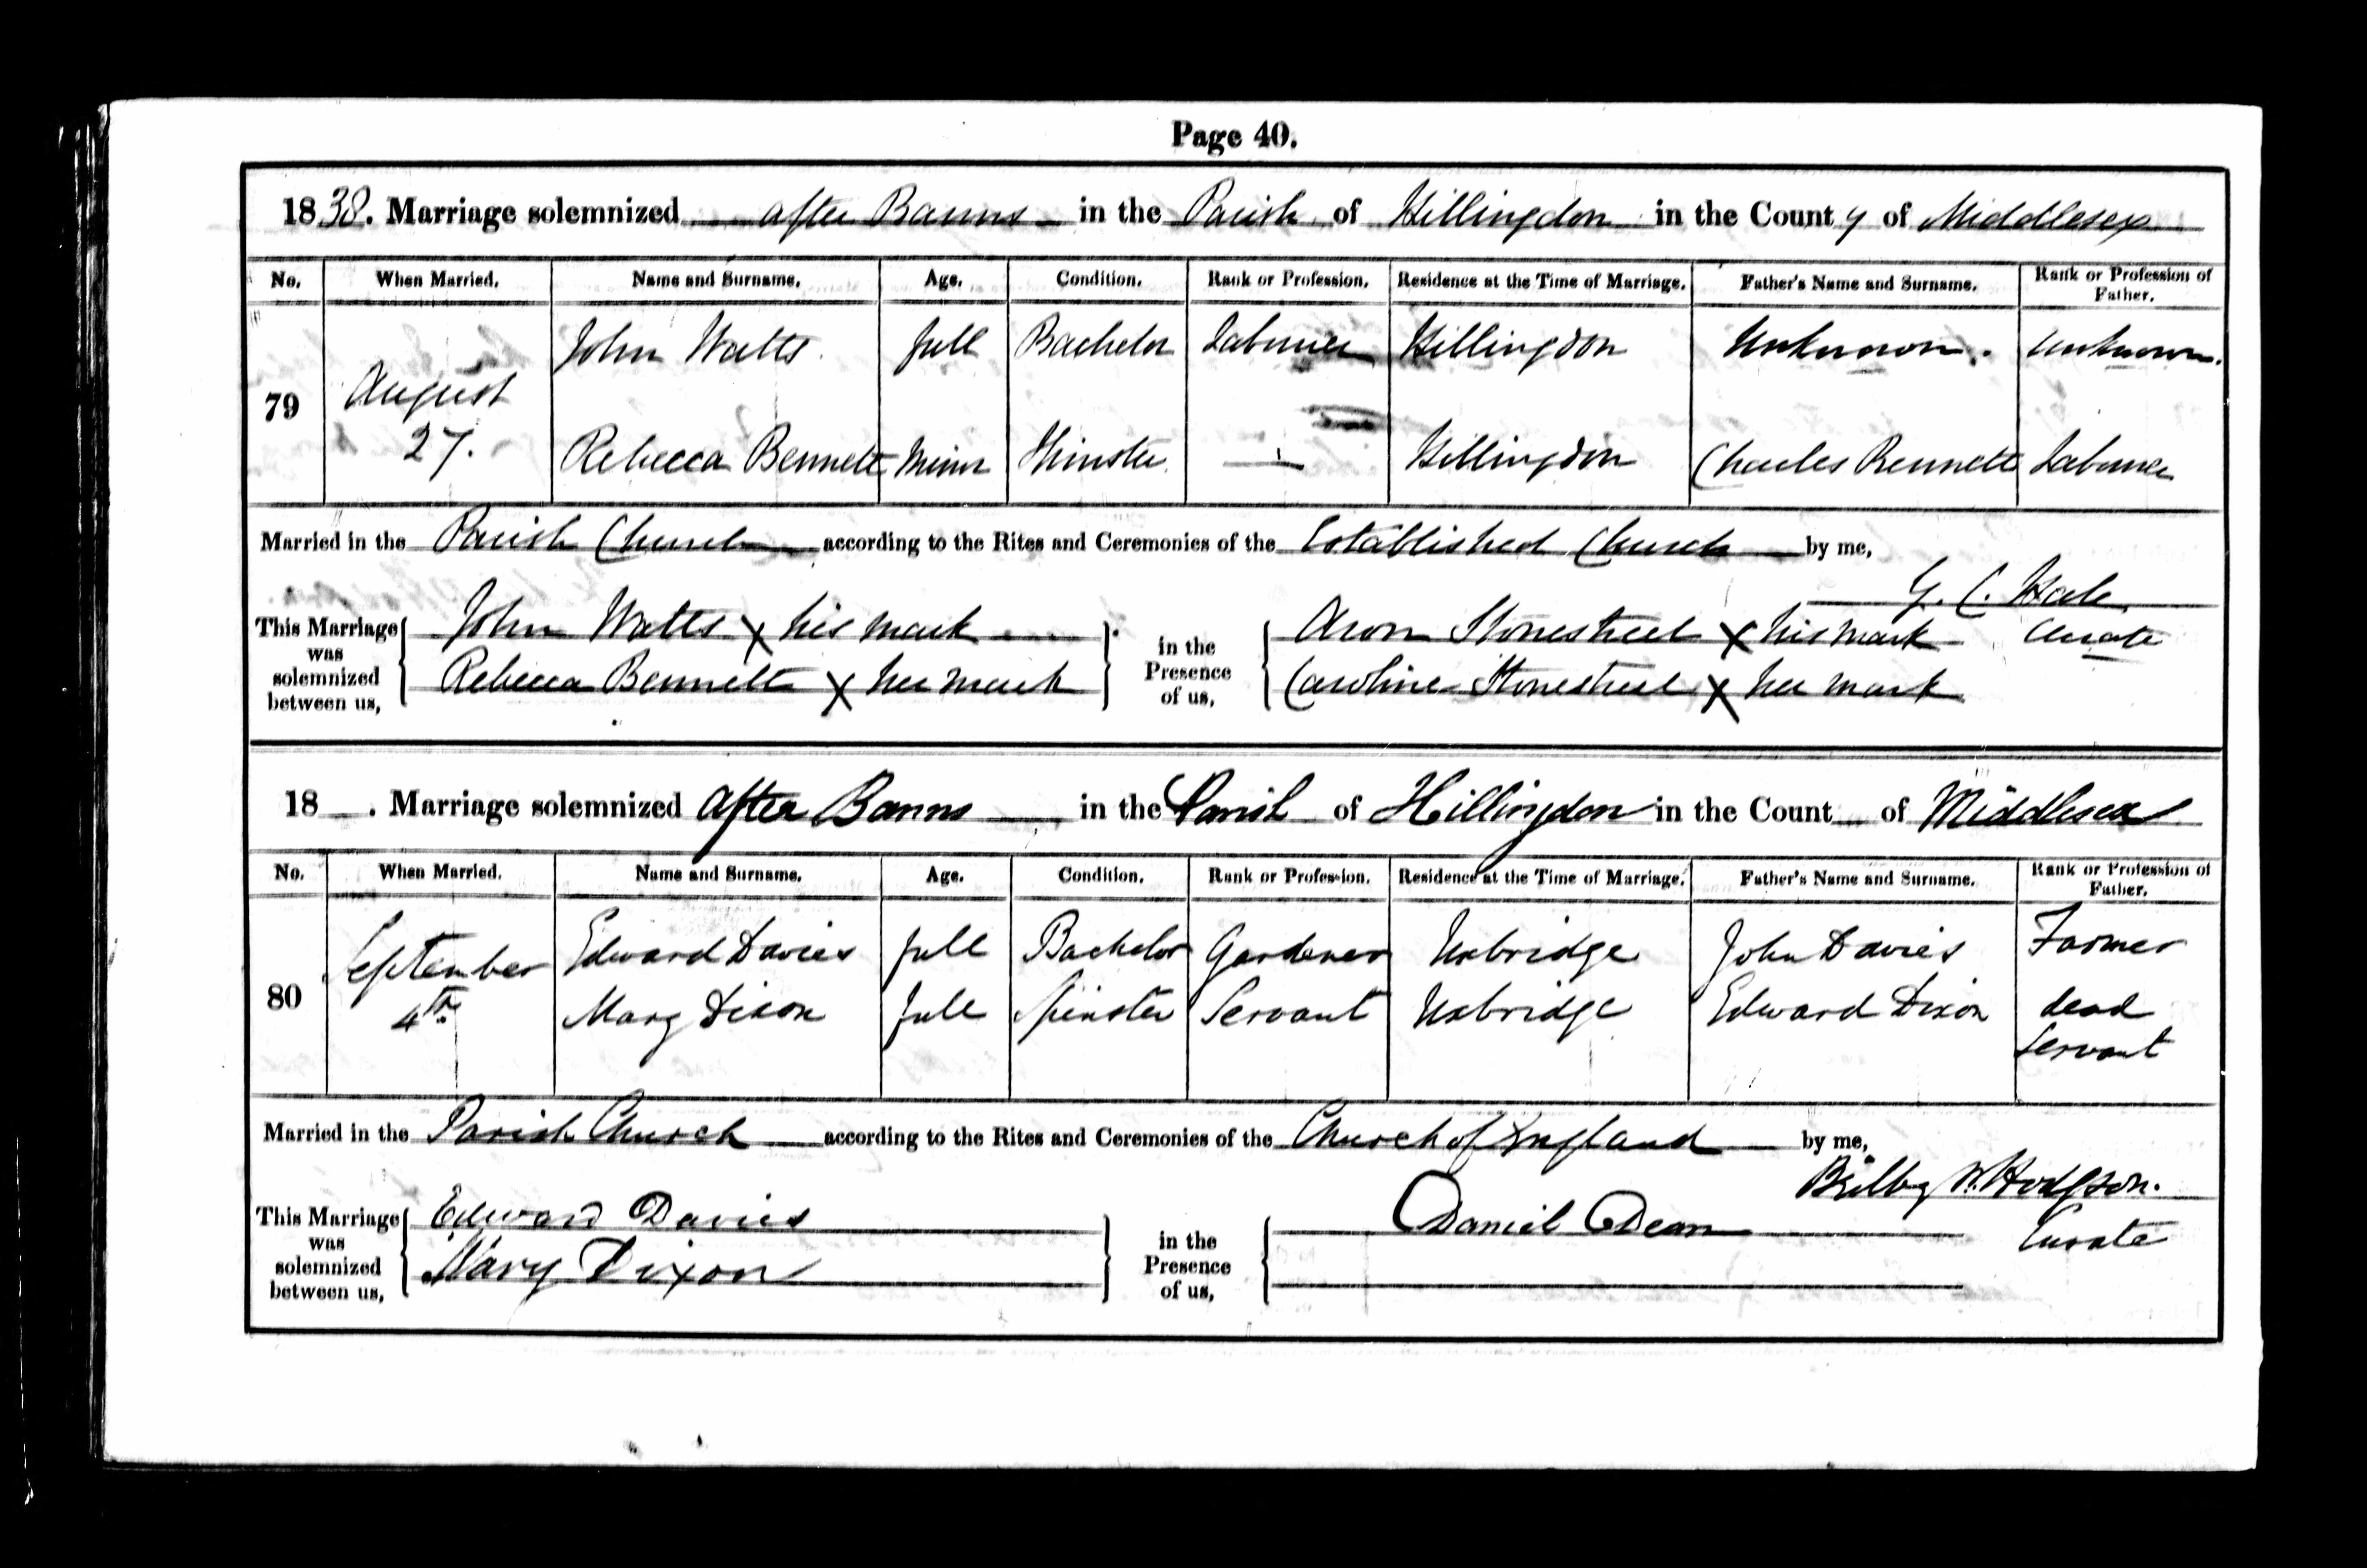 Page 40.
1838. Marriage solemnized after Banns in the Parish of Hillingdon in the County of Middlesex
No. When Married. Name and Surname. Age. Condition. Rank or Profession. Residence at the Time of Marriage. Father's Name and Surname. Rank or Profession of Father.
79 August 27. John Watts full Bachelor Labourer Hillingdon Unknown. Unknown.
Rebecca Bennett Minor Spinster — Hillingdon Charles Bennett Labourer
Married in the Parish Church according to the Rites and Ceremonies of the Established Church by me,
G. C. Hale
Curate
This Marriage was solemnized between us, John Watts X his mark in the Presence of us, Aron Stonestreet X his mark
Rebecca Bennett X her mark Caroline Stonestreet X her mark
18 . Marriage solemnized after Banns in the Parish of Hillingdon in the Count of Middlesex
No. When Married. Name and Surname. Age. Condition. Rank or Profession. Residence at the Time of Marriage. Father's Name and Surname. Rank or Profession of Father.
80 September 4th. Edward Davies full Bachelor Gardener Uxbridge John Davies Farmer
Mary Dixon full Spinster Servant Uxbridge Edward Dixon dead Servant
Married in the Parish Church according to the Rites and Ceremonies of the Church of England by me,
W. Hodgson.
Curate
This Marriage was solemnized between us, Edward Davies in the Presence of us, Daniel Dean
Mary Dixon